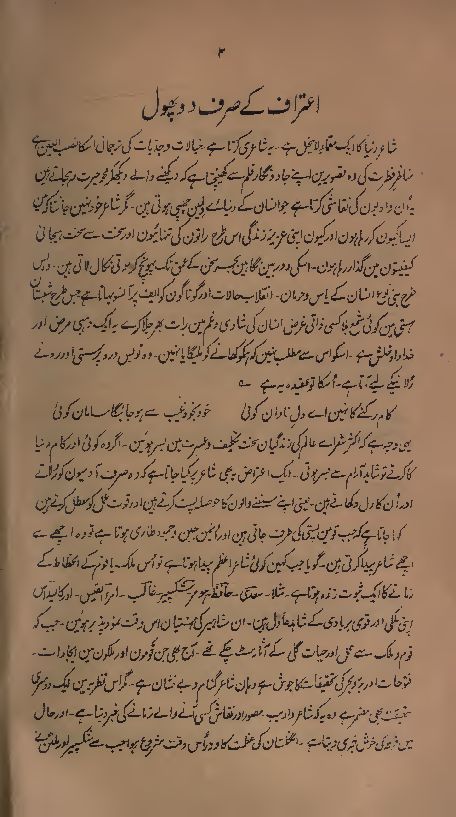 ۳
اعتراف کے صرف دو پھول
شاعر دنیا کا ایک معمہ لاینحل ہے۔ یہ شاعری کرتا ہے خیالات و جذبات کی ترجمانی اسکا نصب العین ہے
مناظر فطرت کی وہ تصویرین اپنے جادو نگار قلم سے کھینچتا ہے کہ دیکھنے والے دیکھکر محو حیرت رہجاتے ہین
یہ اُن وادیون کی نقاشی کرتا ہے جو انسان کے دنیاے دل مین چھپی ہوتی ہین۔ مگر شاعر خود نہین جانتا کہ مین
ایسا کیون کر رہا ہون اور کیون اپنی عزیز زندگی اس طرح راتون کی تنہائیون اور سخت سے سخت ہیجانی
کیفیتون مین گذار رہا ہون۔ اسکی دوربین نگاہین بحر سخن کے عمق تک پہونچکر موتی نکال لاتی ہین۔
طرح بنی نوع انسان کے یاس و حرمان۔ انقلاب حالات اور گوناگون کوائف پر آنسو بہاتا ہے جس طرح شبستان
ہستی مین کوئی شمع بلا کسی ذاتی غرض انسان کی شادی و غم مین رات بھر جلا کرے یہ ایک وہبی مرض اور
خداداد خلش ہے۔ اسکو اس سے مطلب نہین کہ مجکو کھانے کو ملیگا یا نہین۔ وہ تو بس درد پرستی اور رونے
رُلانیکے لیے آتا ہے۔ اُسکا تو عقیدہ یہ ہے
کام رکنے کا نہین اے دل نادان کوئی خود بخود غیب سے ہو جائیگا سامان کوئی
یہی وجہ ہے کہ اکثر شعراے عالم کی زندگیان سخت تکلیف و عسرت مین بسر ہوئین۔ اگر وہ کوئی اور کام دنیا
کا کرتے تو شاید آرام سے بسر ہوتی۔ ایک اعتراض یہ بھی شاعر پر کیا جاتا ہے کہ وہ صرف آدمیون کو رُلاتے
اور اُن کا دل دکھاتے ہین۔ یعنی اپنے سننے والون کا حوصلہ پست کرتے ہین اور قوت عمل کو معطل کرتے ہین
کہا جاتا ہے کہ جب قومین پستی کی طرف جاتی ہین اور اُنپر جبن و جمود طاری ہوتا ہے تو وہ اچھے سے
اچھے شاعر پیدا کرتی ہین۔ گویا جب کہین کوئی شاعر اعظم پیدا ہوتا ہے تو اُس ملک۔ یا قوم کے انحطاط کے
زمانے کا ایک ثبوت زندہ ہوتا ہے۔ مثلاً۔ سعدی۔ حافظ۔ ہومر۔ شکسپیر۔ غالب۔ امرء القیس۔ اور کالیداس
اپنی ملکی اور قومی بربادی کے شاہد عادل ہین۔ ان مشاہیر کی ہستیان اس وقت نمودپذیر ہوئین۔ جب کہ
قوم و ملک سے عمل اور حیات ملی کے آثار مٹ چکے تھے۔ آج بھی جن قومون اور ملکون مین ایجادات۔
فتوحات اور دیگر کی تحقیقات کا جوش ہے وہان شاعر گمنام و بے نشان ہے۔ مگر اس نظریے مین ایک دوسری
حقیقت بھی مضمر ہے وہ یہ کہ شاعر و ادیب۔ مصور اور نقاش کسی آنے والے زمانے کی خبر دیتا ہے۔ اور حال
مین فردا کی خوش خبری دیتا ہے۔ انگلستان کی عظمت کا دور اُس وقت شروع ہوا جب سے شکسپیر اور ملٹن جیسے